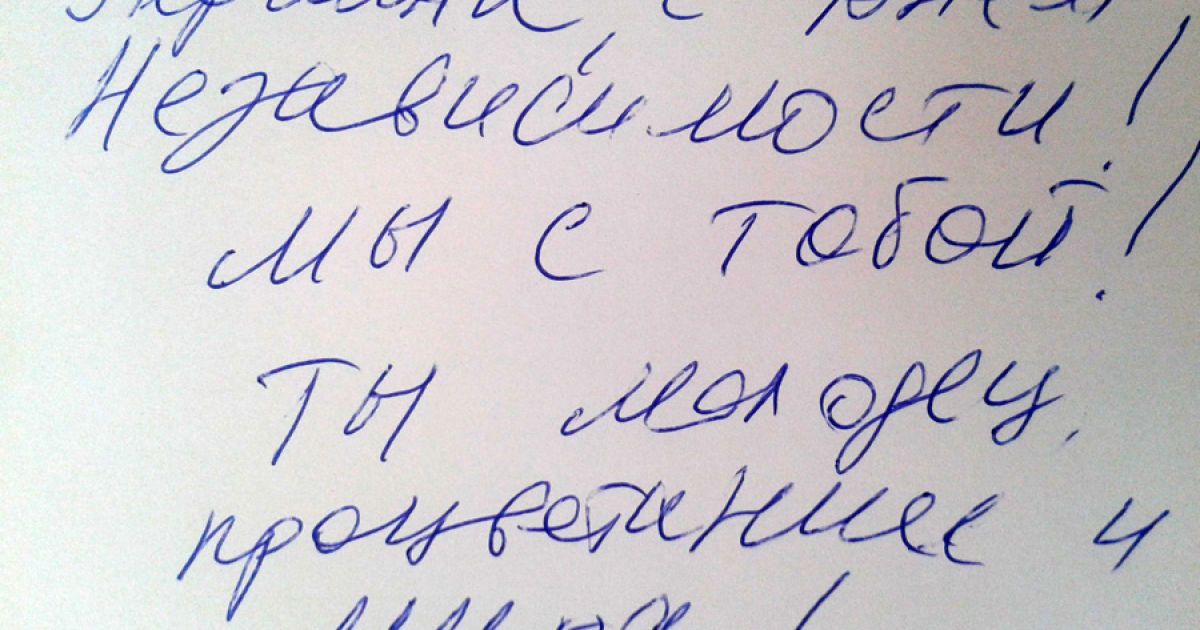 Независимости!
мы с тобой!
Ты молодец,
процветание и